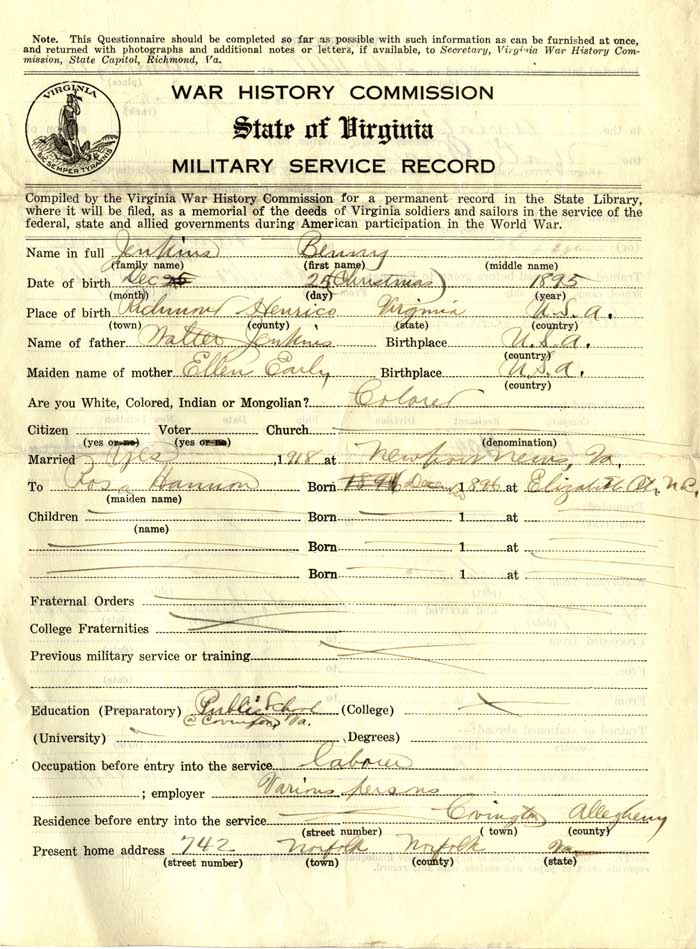 Note. This Questionnaire should be completed so far as possible with such information as can be furnished at once,
and returned with photographs and additional notes or letters, if available, to Secretary, Virginia War History Com-
mission, State Capitol, Richmond, Va.
VIRGINIA
SIC SEMPER TYRANNIS
WAR HISTORY COMMISSION
State of Virginia
MILITARY SERVICE RECORD
Compiled by the Virginia War History Commission for a permanent record in the State Library,
where it will be filed, as a memorial of the deeds of Virginia soldiers and sailors in the service of the
federal, state and allied governments during American participation in the World War.
Name in full Jenkins Benny
(family name) (first name) (middle name)
Date of birth Dec 25 (Christmas) 1895
(month) (day) (year)
Place of birth Richmond Henrico Virginia U.S.A.
(town) (county) (state) (country)
Name of father Walter Jenkins Birthplace U.S.A.
(country)
Maiden name of mother Ellen Early Birthplace U.S.A.
(country)
Are you White, Colored, Indian or Mongolian? Colored
Citizen Voter Church
(yes or no) (yes or no) (denomination)
Married Yes, 1918 at Newport News, Va.
To Rosa Hannon Born 1896 at Elizabeth City N.C.
(maiden name)
Children Born 1 at
(name)
Born 1 at
Born 1 at
Fraternal Orders
College Fraternities
Previous military service or training
Education (Preparatory) Public School (College)
Covington, Va.
(University) (Degrees)
Occupation before entry into the service laborer
; employer Various persons
Residence before entry into the service Covington Allegheny
(street number) (town) (county)
Present home address 742 Norfolk Norfolk Va
(street number) (town) (county) (state)